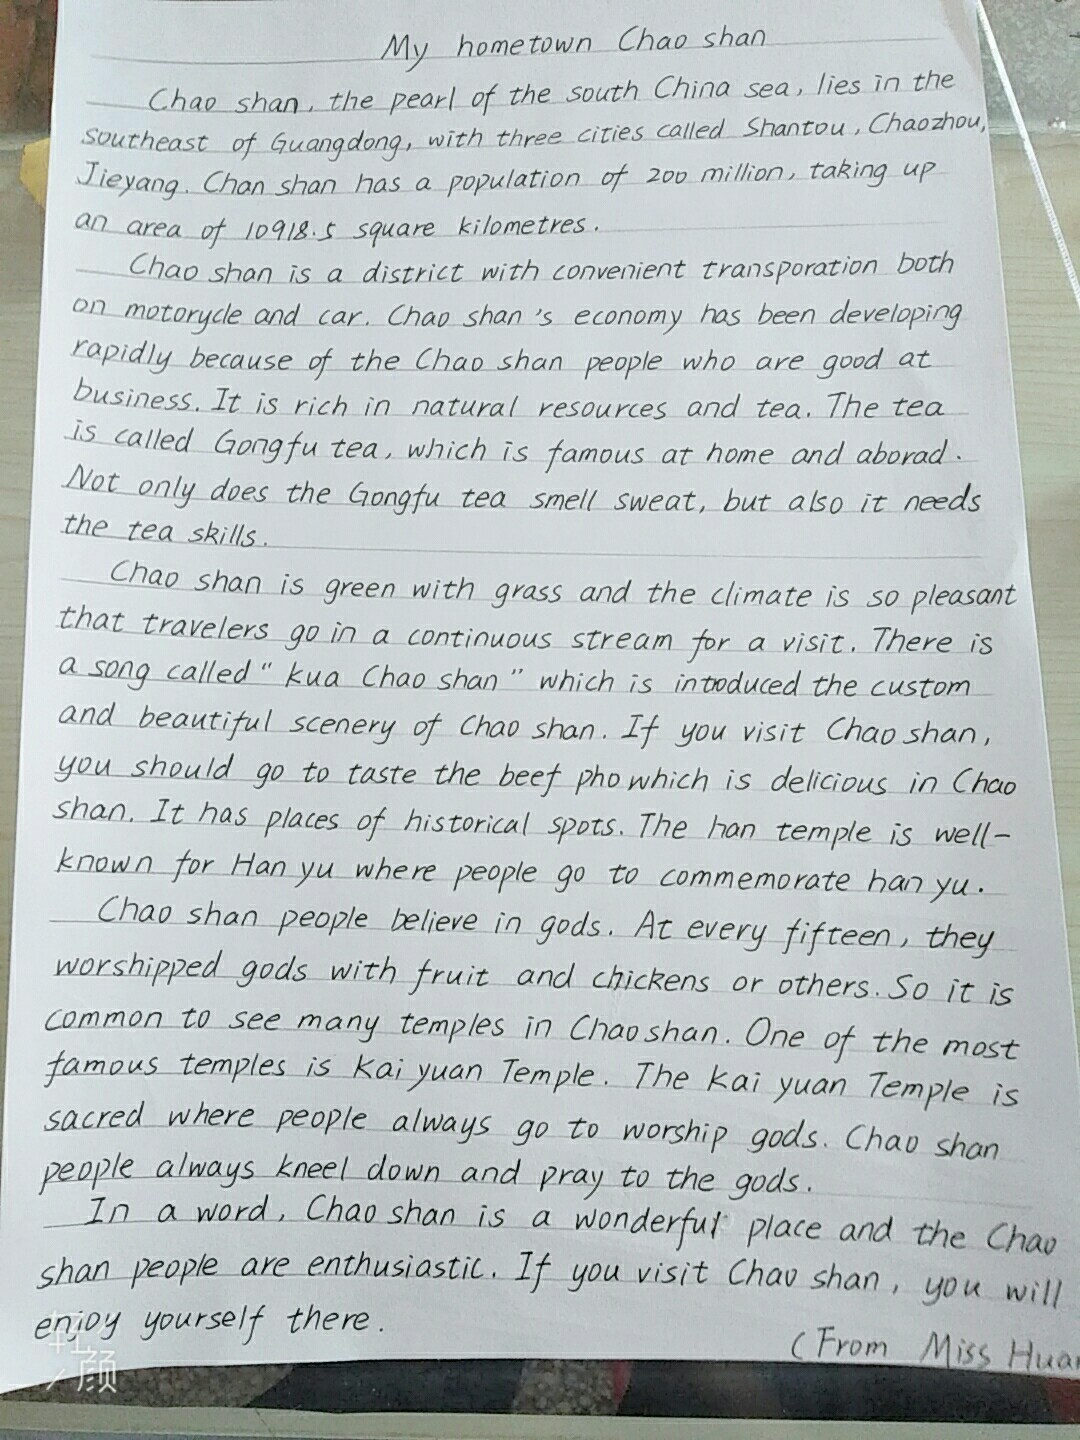 My hometown Chao shan
Chao shan, the pearl of the south China sea, lies in the
southeast of Guangdong, with three cities called Shantou, Chaozhou,
Jieyang. Chan shan has a population of 200 million, taking up
an area of 10918.5 square kilometres.
Chao shan is a district with convenient transporation both
on motorycle and car. Chao shan's economy has been developing
rapidly because of the Chao shan people who are good at
business. It is rich in natural resources and tea. The tea
is called Gongfu tea, which is famous at home and aborad.
Not only does the Gongfu tea smell sweat, but also it needs
the tea skills.
Chao shan is green with grass and the climate is so pleasant
that travelers go in a continuous stream for a visit. There is
a song called "kua Chao shan" which is intoduced the custom
and beautiful scenery of Chao shan. If you visit Chao shan,
you should go to taste the beef pho which is delicious in Chao
shan. It has places of historical spots. The han temple is well-
known for Han yu where people go to commemorate han yu.
Chao shan people believe in gods. At every fifteen, they
worshipped gods with fruit and chickens or others. So it is
common to see many temples in Chao shan. One of the most
famous temples is Kai yuan Temple. The Kai yuan Temple is
sacred where people always go to worship gods. Chao shan
people always kneel down and pray to the gods.
In a word, Chao shan is a wonderful place and the Chao
shan people are enthusiastic. If you visit Chao shan, you will
enjoy yourself there.
(From Miss Huan
轻
颜